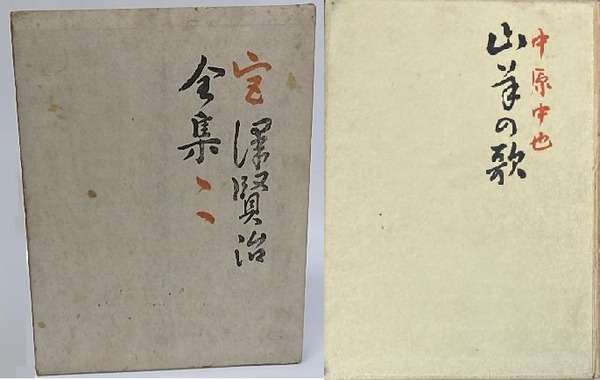 宮澤賢治
全集
中原中也
山羊の歌